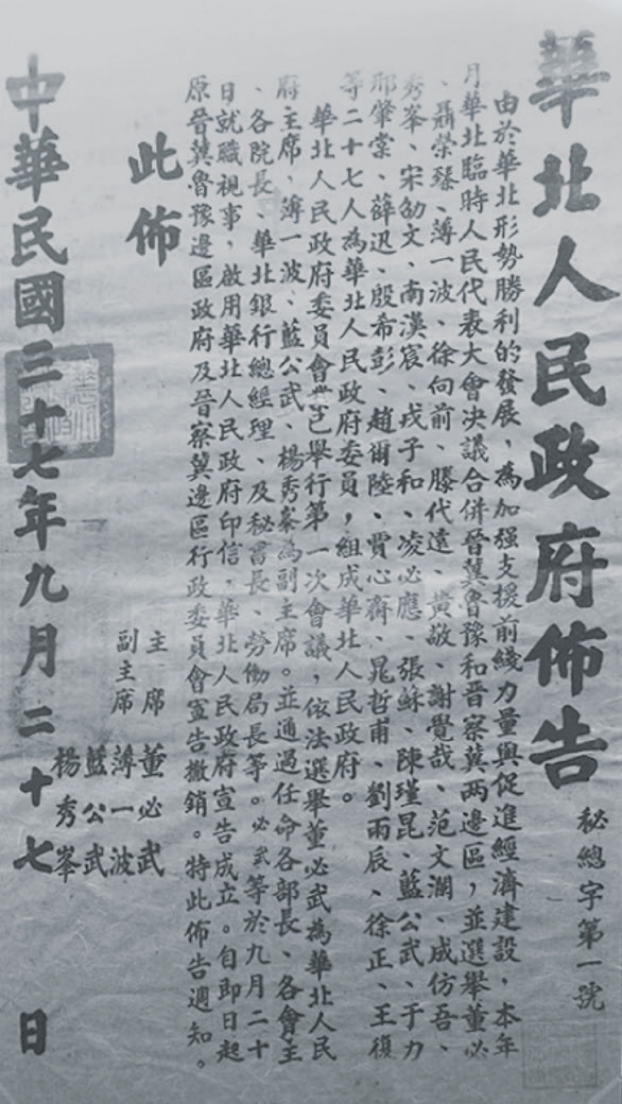 華北人民政府佈告
秘總字第一號
由於華北形勢勝利的發展，為加强支援前綫力量與促進經濟建設，本年
月華北臨時人民代表大會决議合併晉冀魯豫和晉察冀两邊區，並選舉董必
、聶榮臻、薄一波、徐向前、滕代遠、黃敬、謝覺哉、范文瀾、成仿吾、
秀峯、宋劭文、南漢宸、戎子和、凌必應、張蘇、陳瑾昆、藍公武、于力
邢肇棠、薛迅、殷希彭、趙爾陸、賈心齋、晁哲甫、劉雨辰、徐正、王復
等二十七人為華北人民政府委員，組成華北人民政府。
華北人民政府委員會業已舉行第一次會議，依法選舉董必武為華北人民
府主席、薄一波、藍公武、楊秀峯為副主席。並通過任命各部長、各會主
、各院長、華北銀行總經理、及秘書長、勞働局長等。必武等於九月二十
日就職視事，啟用華北人民政府印信。華北人民政府宣告成立。自即日起
原晉冀魯豫邊區政府及晉察冀邊區行政委員會宣告撤銷。特此佈告週知。
此佈
主席 董必武
副主席 薄一波
藍公武
楊秀峯
中華民國三十七年九月二十七日